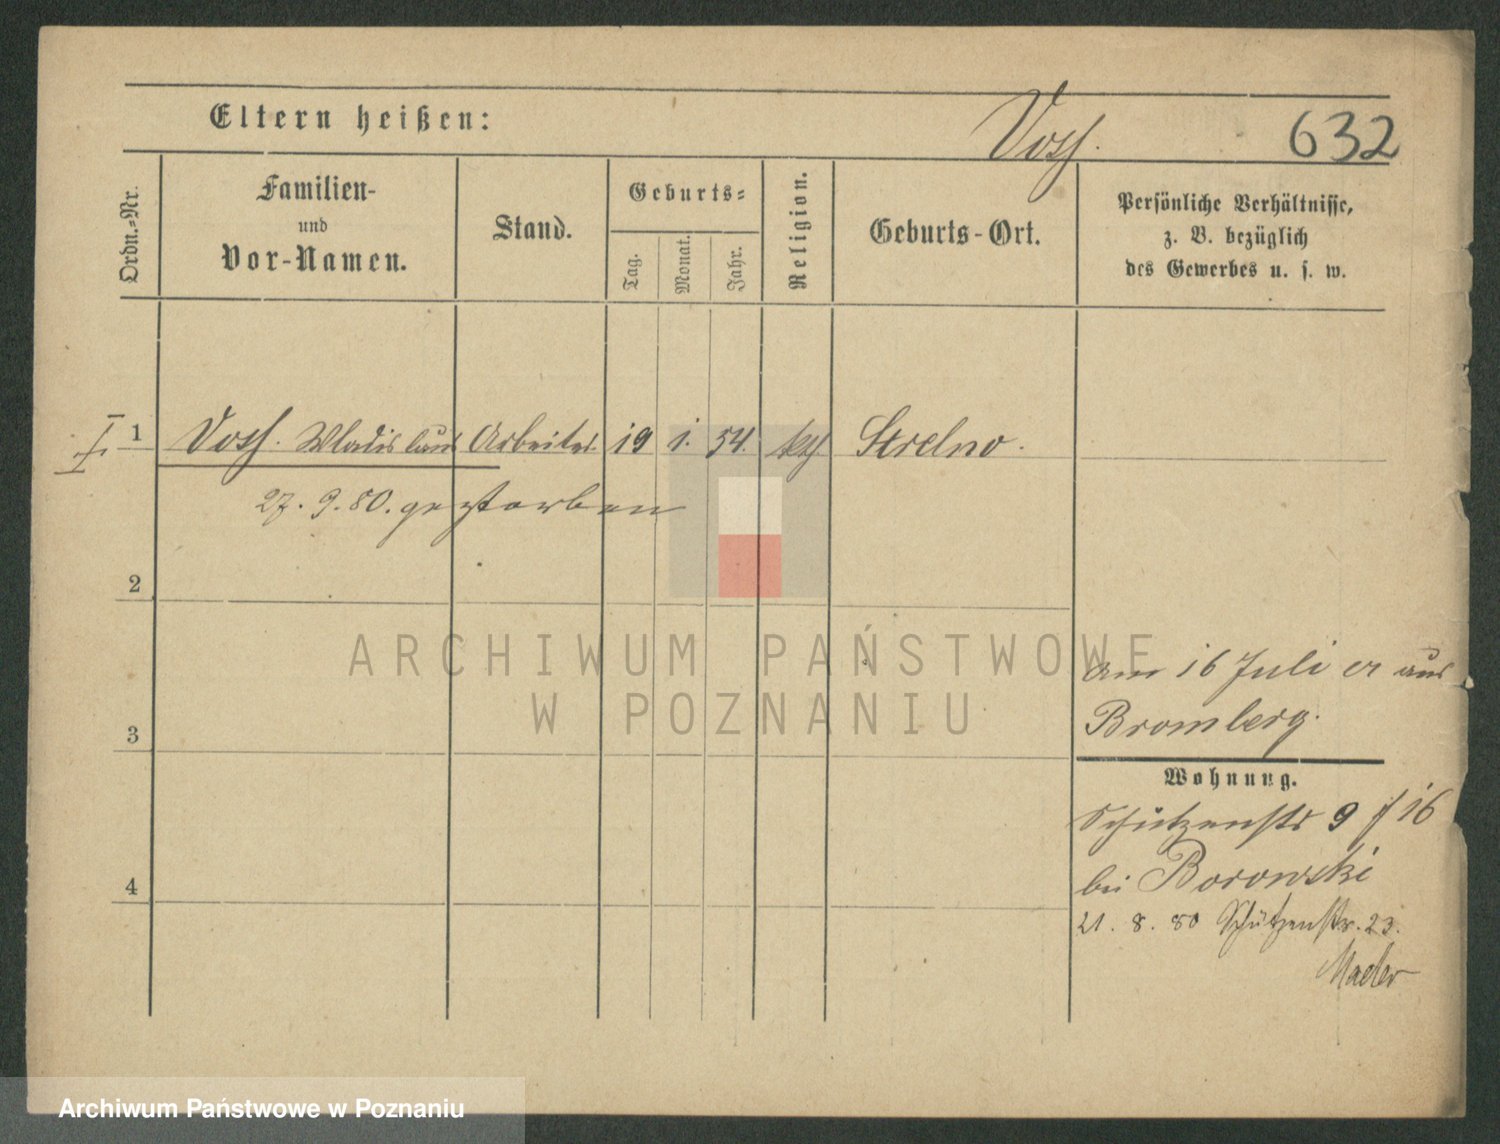 Eltern heißen:
Voss.
632
Ordn.-Nr.
Familien-
und
Vor-Namen.
Stand.
Geburts-
Tag.
Monat.
Jahr.
Religion.
Geburts-Ort.
Persönliche Verhältnisse,
z. B. bezüglich
des Gewerbes u. s. w.
I 1 Voss. Wladislaus Arbeiter 19 1. 54. kth Strelno.
27. 9. 80. gestorben
2
ARCHIWUM PAŃSTWOWE
W POZNANIU
am 16 Juli cr aus
Bromberg.
3
Wohnung.
Schützenstr 9 f 16
bei Borowski
4
21. 8. 80 Schützenstr. 23.
Archiwum Państwowe w Poznaniu